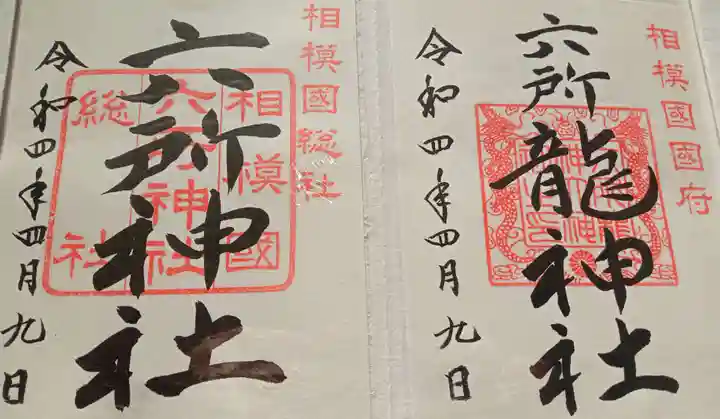 相模國総社
六所神社
相模國
六所神社
総社
令和四年四月九日
相模國國府
六所龍神社
令和四年四月九日